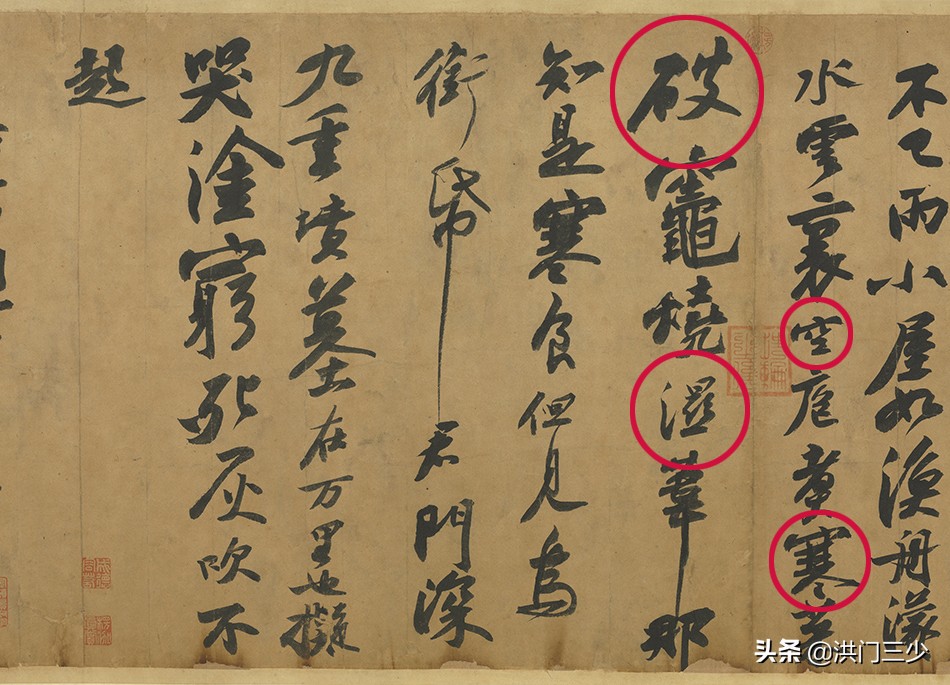 不已雨小屋如漁舟濛
水雲裏空庖煑寒菜
破竈燒濕葦那
知是寒食但見烏
銜帋君門深
九重墳墓在万里也擬
哭塗窮死灰吹不
起
头条 @洪门三少